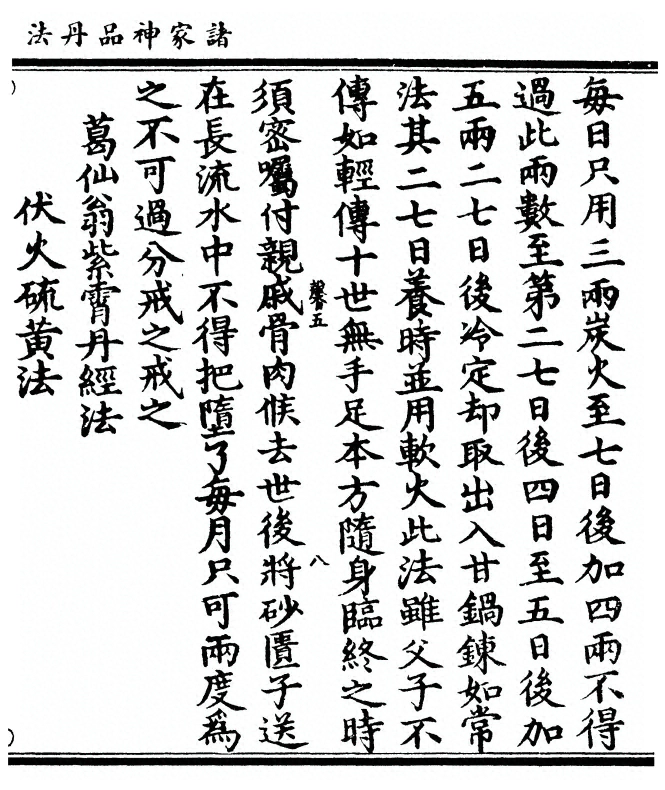 諸家神品丹法
每日只用三兩炭火至七日後加四兩不得
過此兩數至第二七日後四日至五日後加
五兩二七日後冷定却取出入甘鍋鍊如常
法其二七日養時並用軟火此法雖父子不
傳如輕傳十世無手足本方隨身臨終之時
馨五
八
須密囑付親戚骨肉候去世後將砂匱子送
在長流水中不得把墮了每月只可兩度為
之不可過分戒之戒之
葛仙翁紫霄丹經法
伏火硫黃法